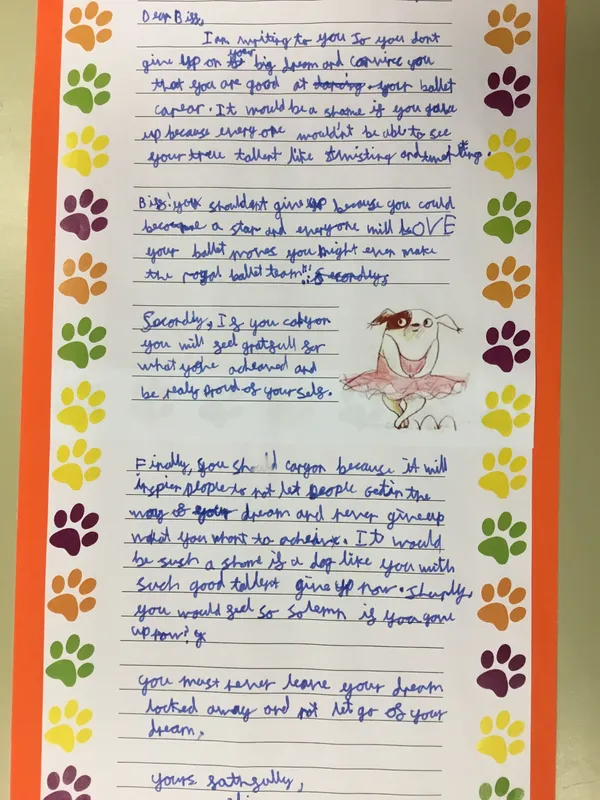 Dear Biff,
I am writing to you so you dont
give up on your big dream and convince you
that you are good at dancing your ballet
carear. It would be a shame if you gave
up because every one wouldn't be able to see
your treu tallent like twisting and twurling.
Biff you shouldnt give up because you could
become a star and everyone will LOVE
your ballet moves you might even make
the royal ballet team!! secondly,
Secondly, If you caryon
you will feel gratfull for
what you've acheaved and
be realy proud of yourself.
Finally, you should caryon because it will
inspier people to not let people get in the
way of your dream and never give up
what you whont to acheave. It would
be such a shame if a dog like you with
such good tallent give up now. Sharply,
you would feel so solemn if you gave
up now?
you must never leave your dream
locked away and not let go of your
dream.
yours fathfully,